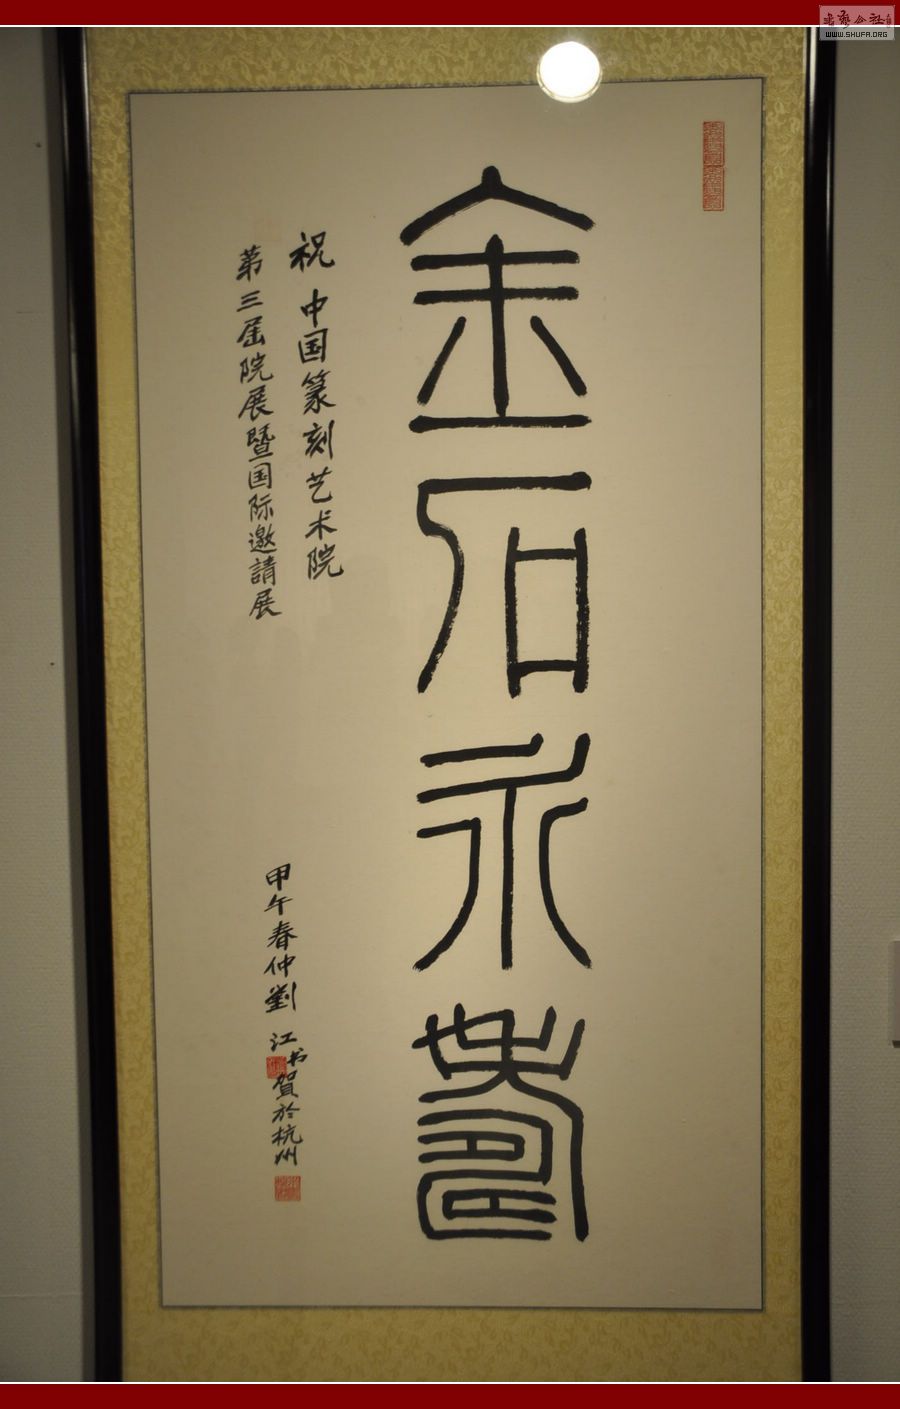 金石永寿
祝中国篆刻艺术院
第三届院展暨国际邀請展
甲午春仲劉江书贺於杭州
WWW.SHUFA.ORG